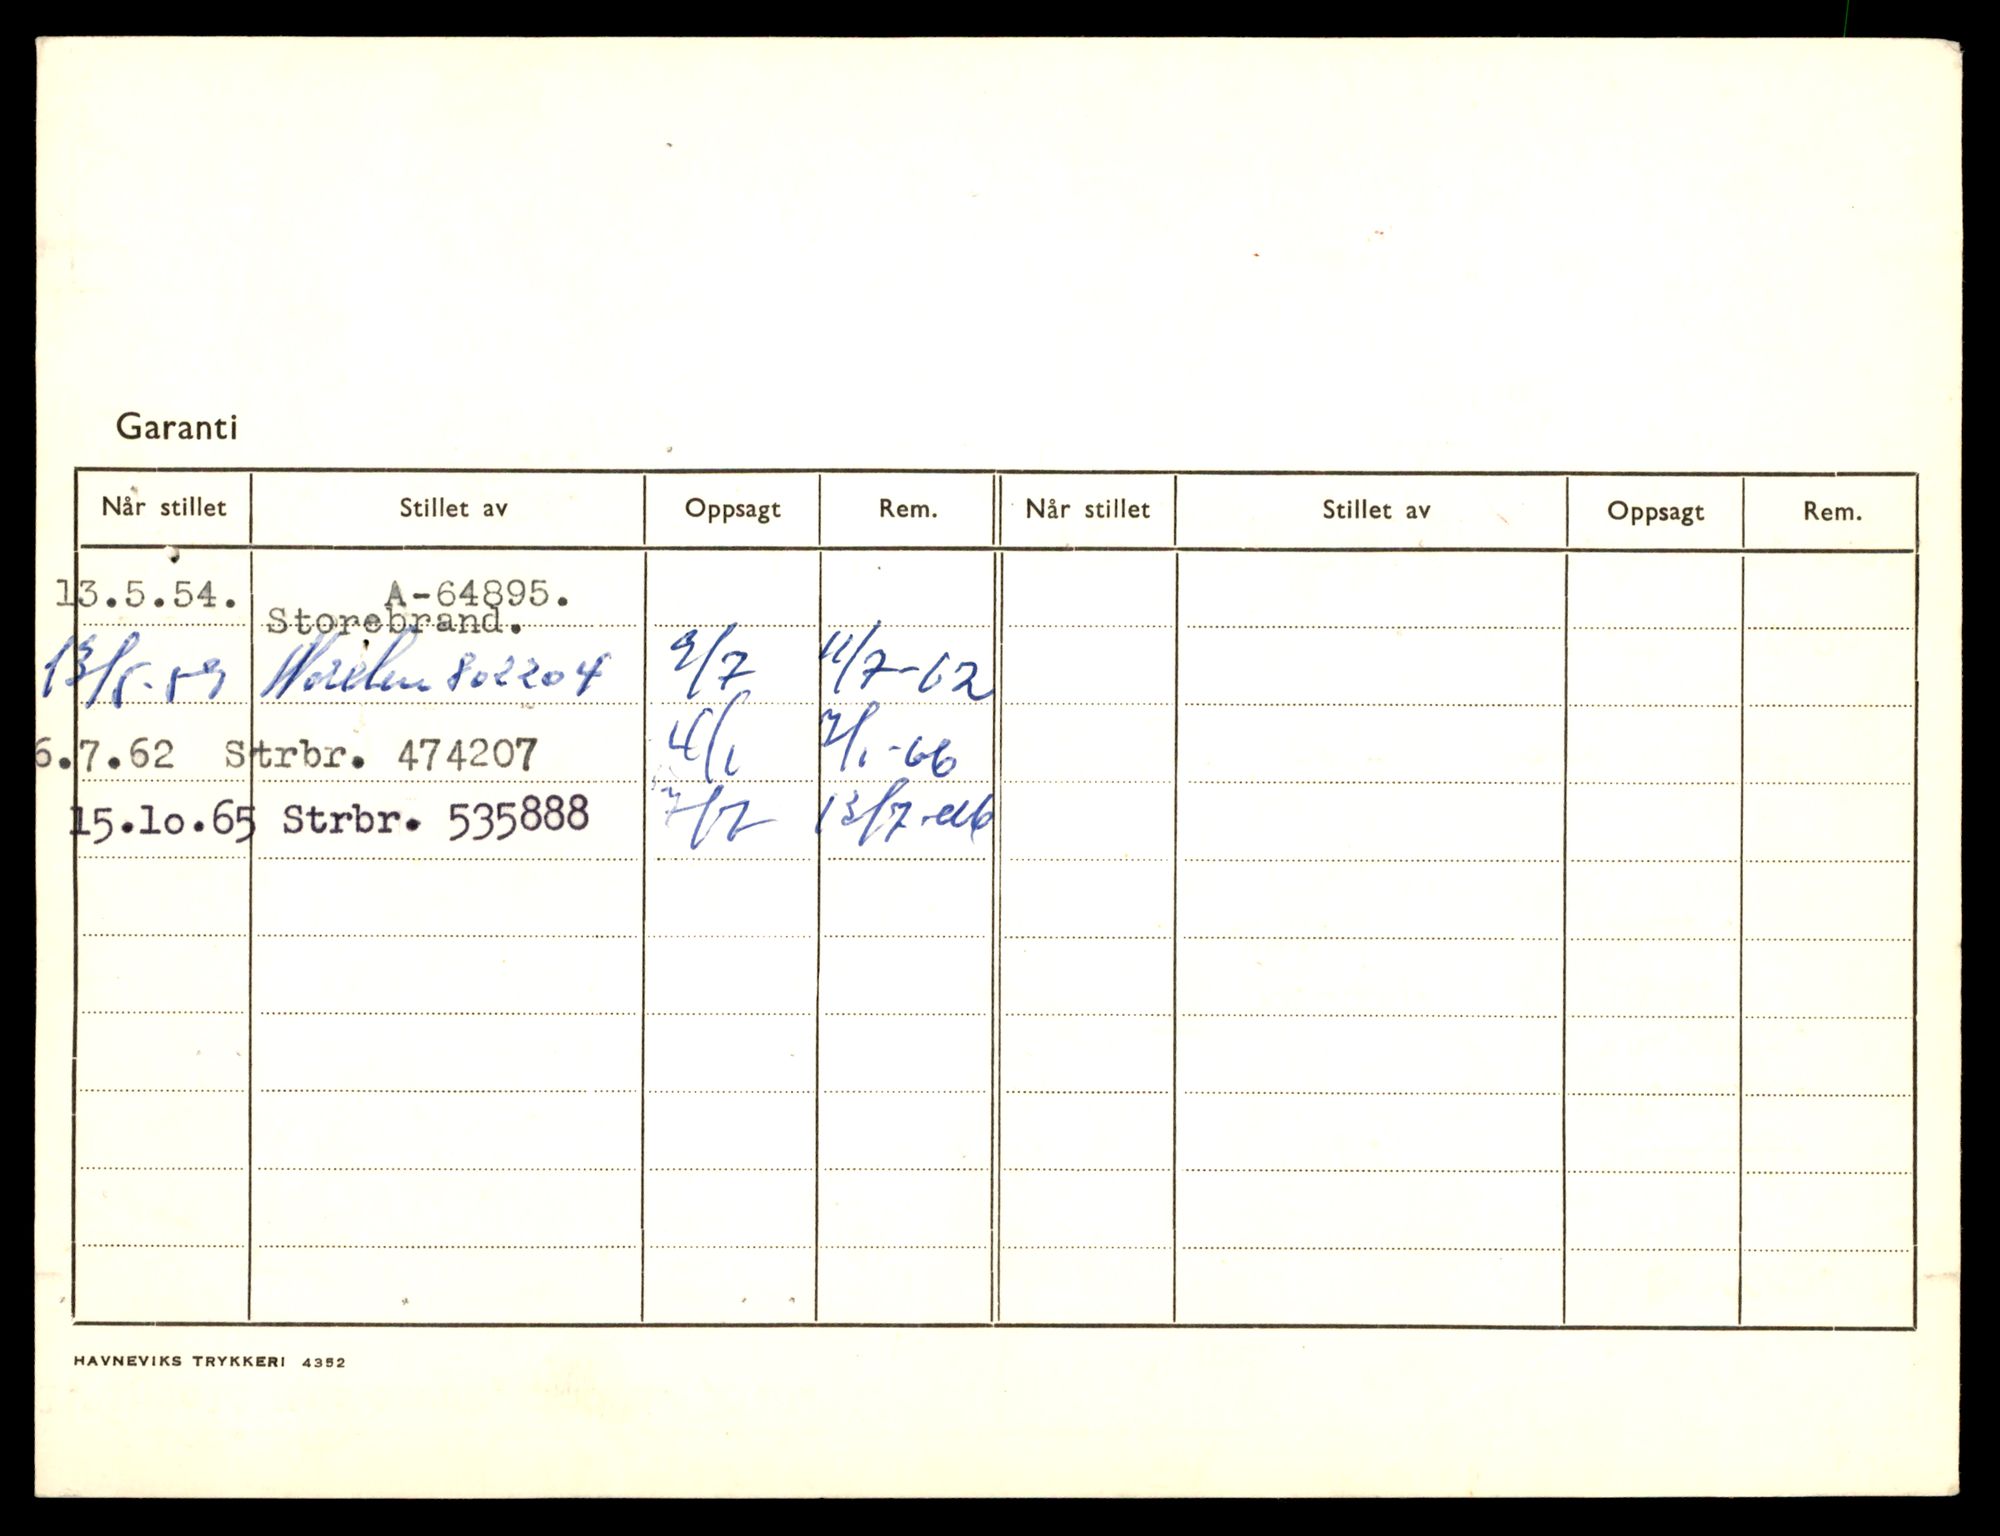 Garanti
Når stillet Stillet av Oppsagt Rem. Når stillet Stillet av Oppsagt Rem.
13.5.54. A-64895.
Storebrand.
13/5-59 802204 9/7 11/7-62
6.7.62 Strbr. 474207 4/1 7/1-66
15.lo.65 Strbr. 535888 7/7 13/7-
HAVNEVIKS TRYKKERI 4352